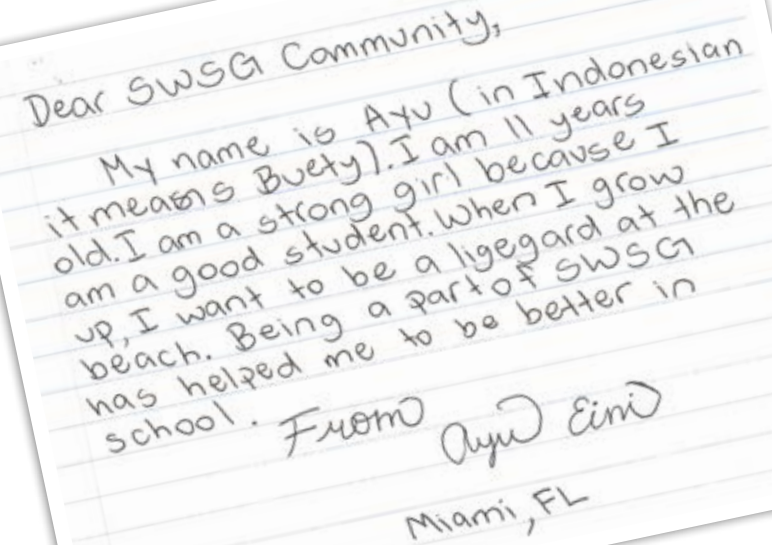 Dear SWSG Community,
My name is Ayu (in Indonesian
it means Buety). I am 11 years
old. I am a strong girl because I
am a good student. When I grow
up, I want to be a ligegard at the
beach. Being a part of SWSG
has helped me to be better in
school.
From Ayu Eini
Miami, FL